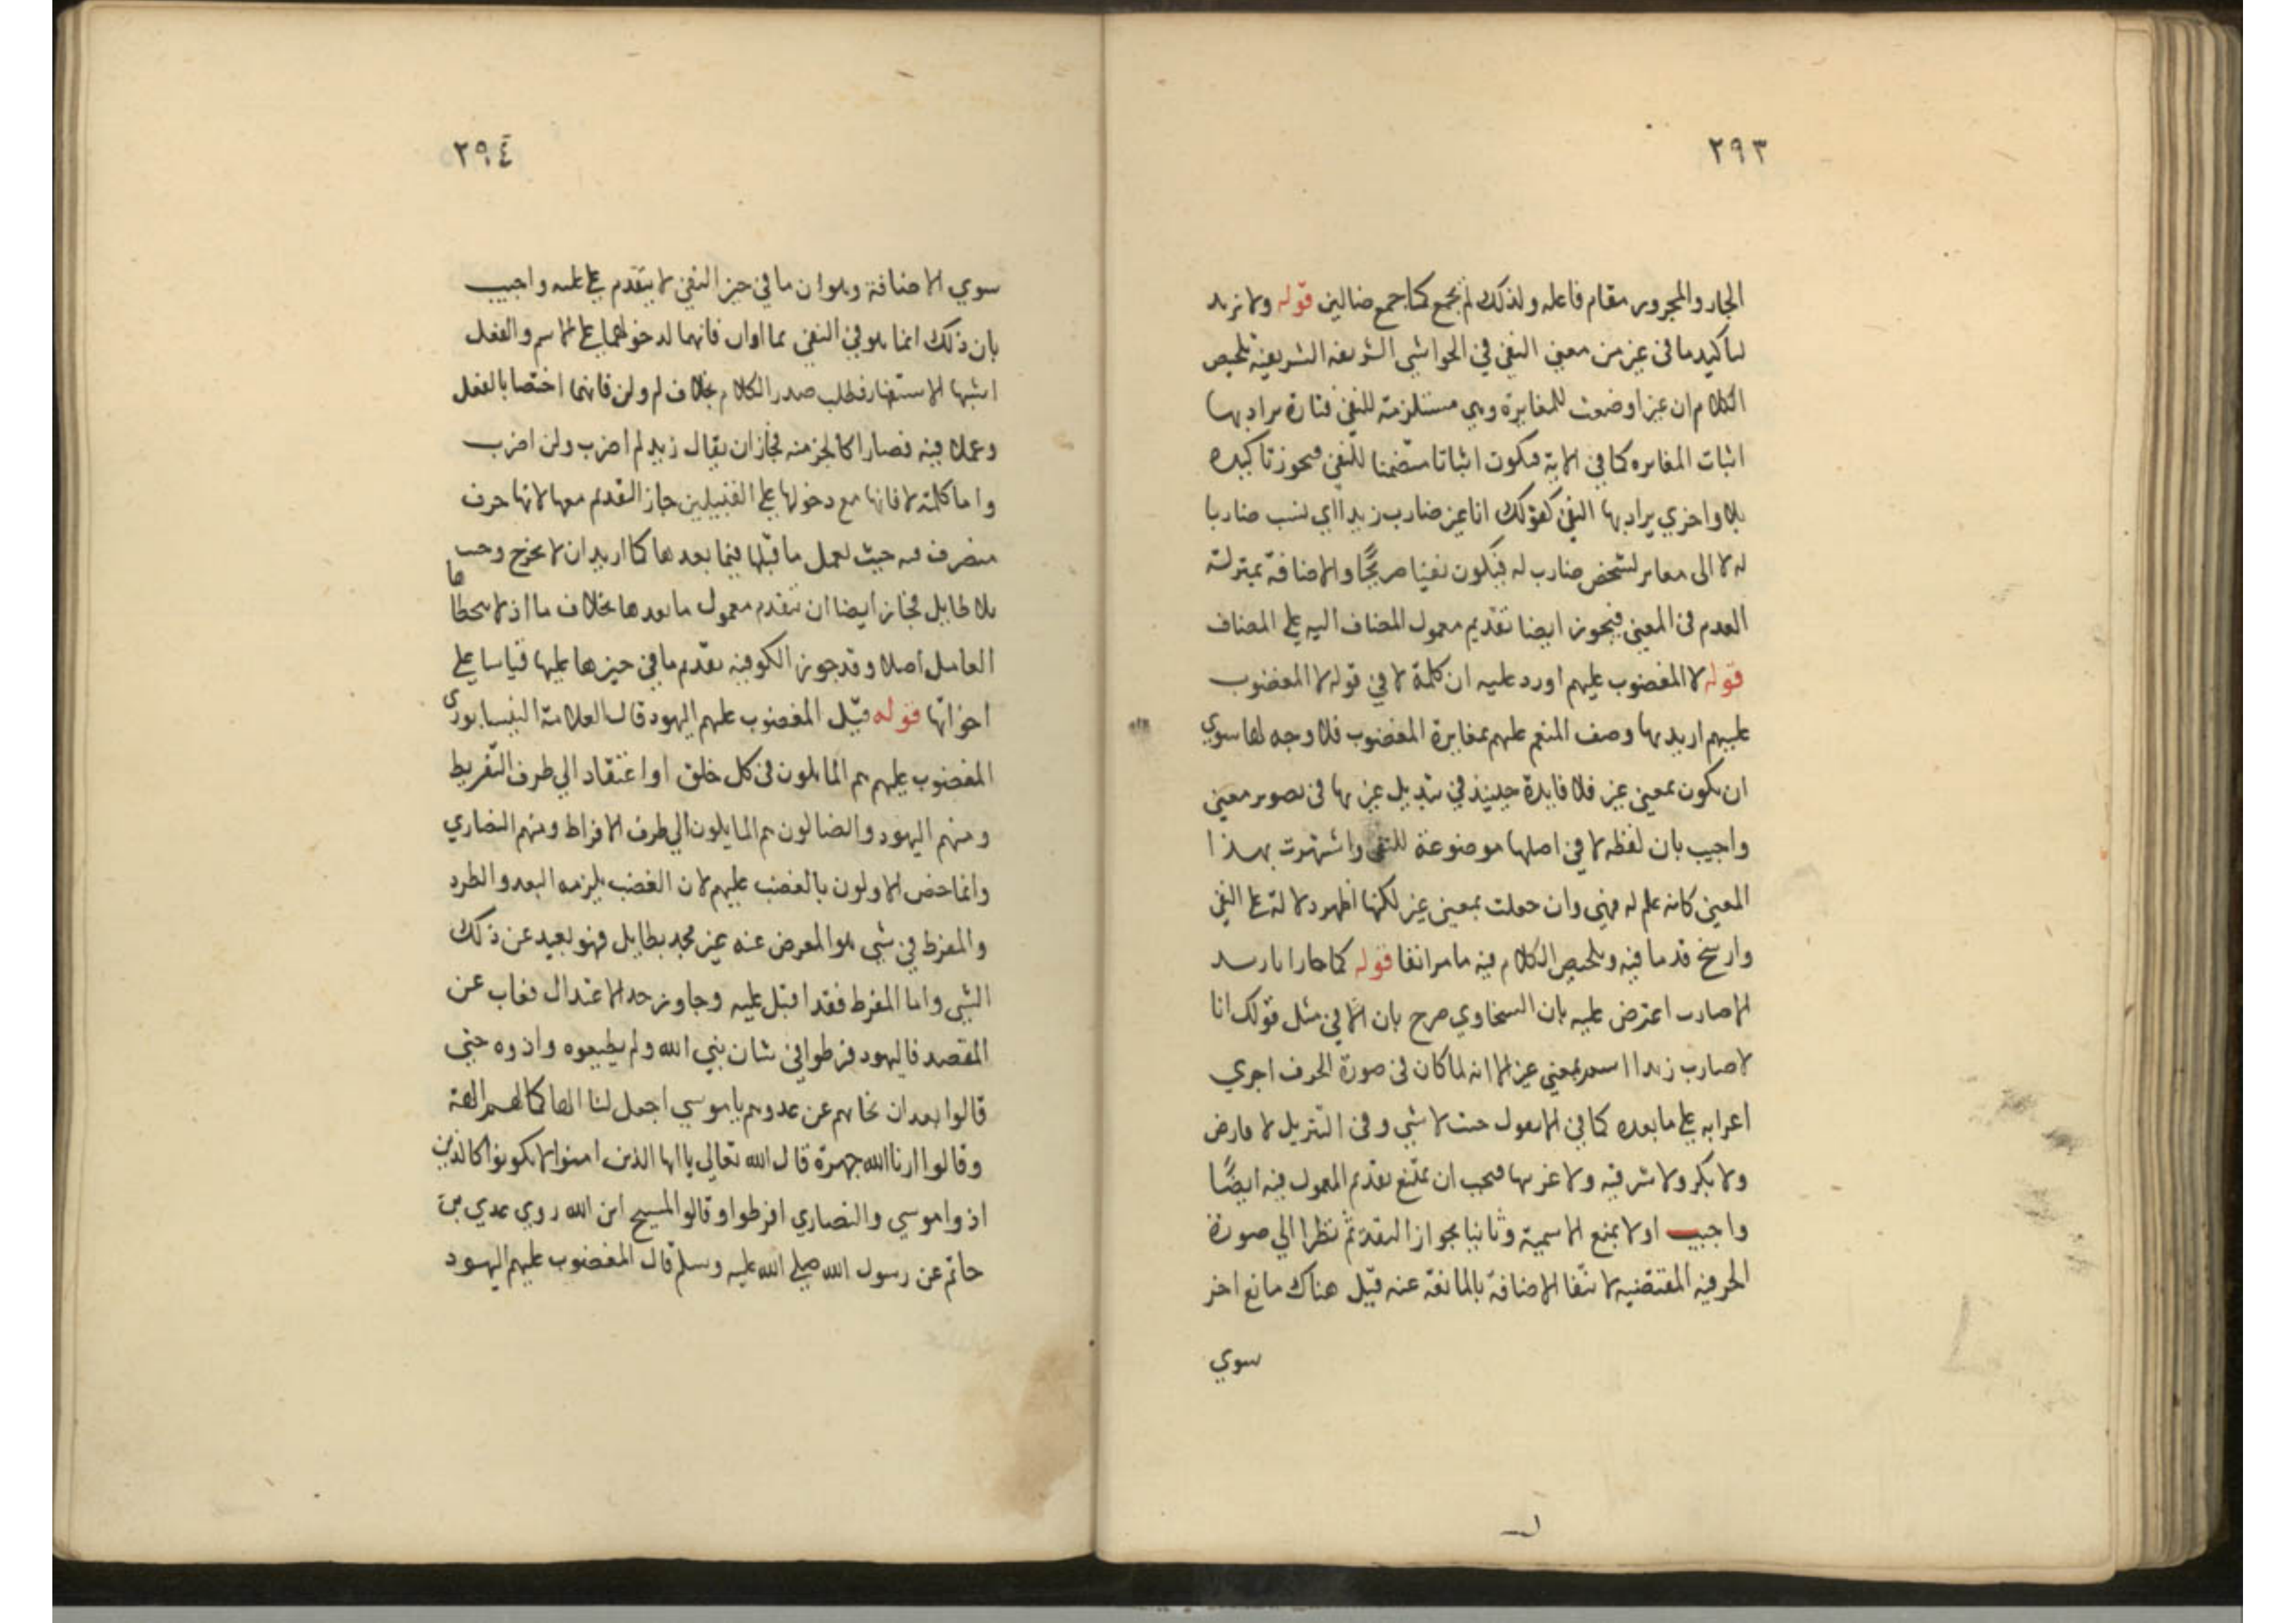 ٢٩٣
الجار والمجرور مقام فاعله ولذلك لم يجمع كما جمع ضالين قوله ولا مزيد
لتأكيد ما في غير من معنى النفي في الحواشي الشريفه الشريفية تلخيص
الكلام ان غيرا وضعت للمغايرة وهي مستلزمة للنفي فتارة يراد بها
اثبات المغايره كما في الاية فيكون اثباتا متضمنا للنفي فيجوز تاكيده
بلا واخري يراد بها النفي كقولك انا غير ضارب زيدا اي لست ضاربا
له لا الى مغاير لشخص ضارب له فيكون نفيا صريحًا والاضافة بمنزلة
العدم في المعنى فيجوز ايضا تقديم معمول المضاف اليه علي المضاف
قوله لا المغضوب عليهم اورد عليه ان كلمة لا في قوله لا المغضوب
عليهم اريد بها وصف المنعم عليهم بمغايرة المغضوب فلا وجه لها سوي
ان يكون بمعني غير فلا فايدة حينيذ في تبديل غير بها في تصوير معني
واجيب بان لفظه لا في اصلها موضوعة للنفي واشتهرت بهذا
المعني كانه علم له فهي وان جعلت بمعني غير لكنها اظهر دلالة علي النفي
وارسخ قدما فيه وتلخيص الكلام فيه ما مر انفا قوله كما جاز انا زيدا
لا ضارب اعترض عليه بان السخاوي صرح بان الا في مثل قولك انا
لا ضارب زيدا اسم بمعني غير الا انه لما كان في صورة الحرف اجري
اعرابه علي ما بعده كما في الا يعول جئت لا شي وفي التنزيل لا فارض
ولا بكر ولا شرقيه ولا غربيها فيجب ان يمتنع تقديم المعمول فيه ايضًا
واجيب اولا بمنع الاسمية وثانيا بجواز التقديم نظرا الي صورة
الحرفيه المقتضيه لا نتفا الاضافة بالمانعة عنه قيل هناك مانع اخر
سوي
٢٩٤
سوي الاضافة وهو ان ما في حيز النفي لا يتقدم علي عليه واجيب
بان ذلك انما هو في النفي بما او ان فانهما لدخولهما علي الاسم والفعل
اشبها الاستفهام فطلب صدر الكلام بخلاف لم ولن فانهما اختصا بالفعل
وعملا فيه فصارا كالجز منه فجاز ان يقال زيد لم اضرب ولن اضرب
واما كلمة لا فانها مع دخولها علي القبيلين جاز التقديم معها لانها حرف
متصرف فيه حيث يعمل ما قبلها فيما بعدها كما اريد ان لا تخرج وجيت
بلا طايل فجاز ايضا ان يتقدم معمول ما بعدها بخلاف ما اذ لا يتخطاها
العامل اصلا وقد جوز الكوفيه تقديم ما في حيزها عليها قياسا علي
اخواتها قوله قيل المغضوب عليهم اليهود قال العلامة النيسابوري
المغضوب عليهم هم المايلون في كل خلق او اعتقاد الي طرف التفريط
ومنهم اليهود والضالون هم المايلون الي طرف الافراط ومنهم النصاري
وانما خص الاولون بالغضب عليهم لان الغضب يلزمه البعد والطرد
والمفرط في شي هو المعرض عنه غير مجد بطايل فهو بعيد عن ذلك
الشي واما المفرط فقد اقبل عليه وجاوز حد الاعتدال فغاب عن
المقصد فاليهود فرطوا في شان نبي الله ولم يطيعوه واذوه حتي
قالوا بعد ان نجاهم عن عدوهم يا موسي اجعل لنا الها كما لهم الهة
وقالوا ارنا الله جهرة قال الله تعالي يا ايها الذين امنوا لا تكونوا كالذين
اذوا موسي والنصاري افرطوا وقالوا المسيح ابن الله روي عدي بن
حاتم عن رسول الله صلي الله عليه وسلم قال المغضوب عليهم اليهود